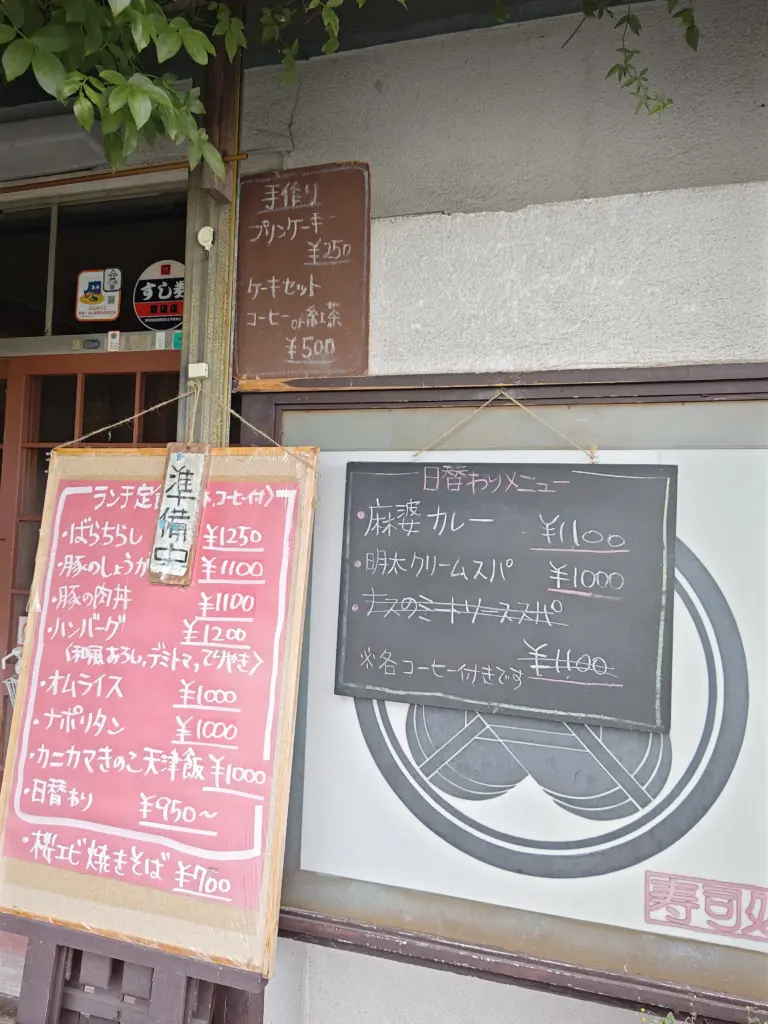 手作り
プリンケーキ
¥250
ケーキセット
コーヒーor紅茶
¥500
すし
準備中
ランチ定食 コーヒー付〉
・ばらちらし ¥1250
・豚のしょうが ¥1100
・豚の肉丼 ¥1100
・ハンバーグ ¥1200
〈和風おろし,デミトマ,てりやき〉
・オムライス ¥1000
・ナポリタン ¥1000
・カニカマきのこ天津飯 ¥1000
・日替わり ¥950〜
・桜エビ焼きそば ¥700
日替わりメニュー
・麻婆カレー ¥1100
・明太クリームスパ ¥1000
・ナスのミートソーススパ
¥1100
※各コーヒー付きです
寿司処